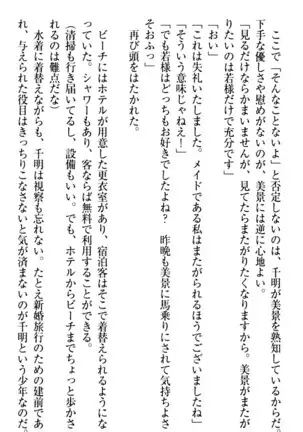 ここで「そんなことないよ」と否定しないのは、千明が美景を熟知しているからだ。
下手な優しさや慰めがないのが、美景には逆に心地よい。
「見るだけならかまいませんが、見てたらまたがりたくなりますから。美景がまたが
りたいのは若様だけで充分です」
「おい」
「これは失礼いたしました。メイドである私はまたがられるほうでございましたね」
「そういう意味じゃねえ！」
「でも若様はどっちもお好きでしたよね？　昨晩も美景に馬乗りにされて気持ちよさ
そおふっ」
再び頭をはたかれた。
ビーチにはホテルが用意した更衣室があり、宿泊客はそこで着替えられるようにな
っていた。シャワーもあり、客ならば無料で利用することができる。
（清掃も行き届いてるし、設備もいい。でも、ホテルからビーチまでちょっと歩かさ
れるのは難点だな）
水着に着替えながらも、千明は視察も忘れない。たとえ新婚旅行のための建前であ
れ、与えられた役目はきっちりこなさないと気が済まないのが千明という少年なのだ。